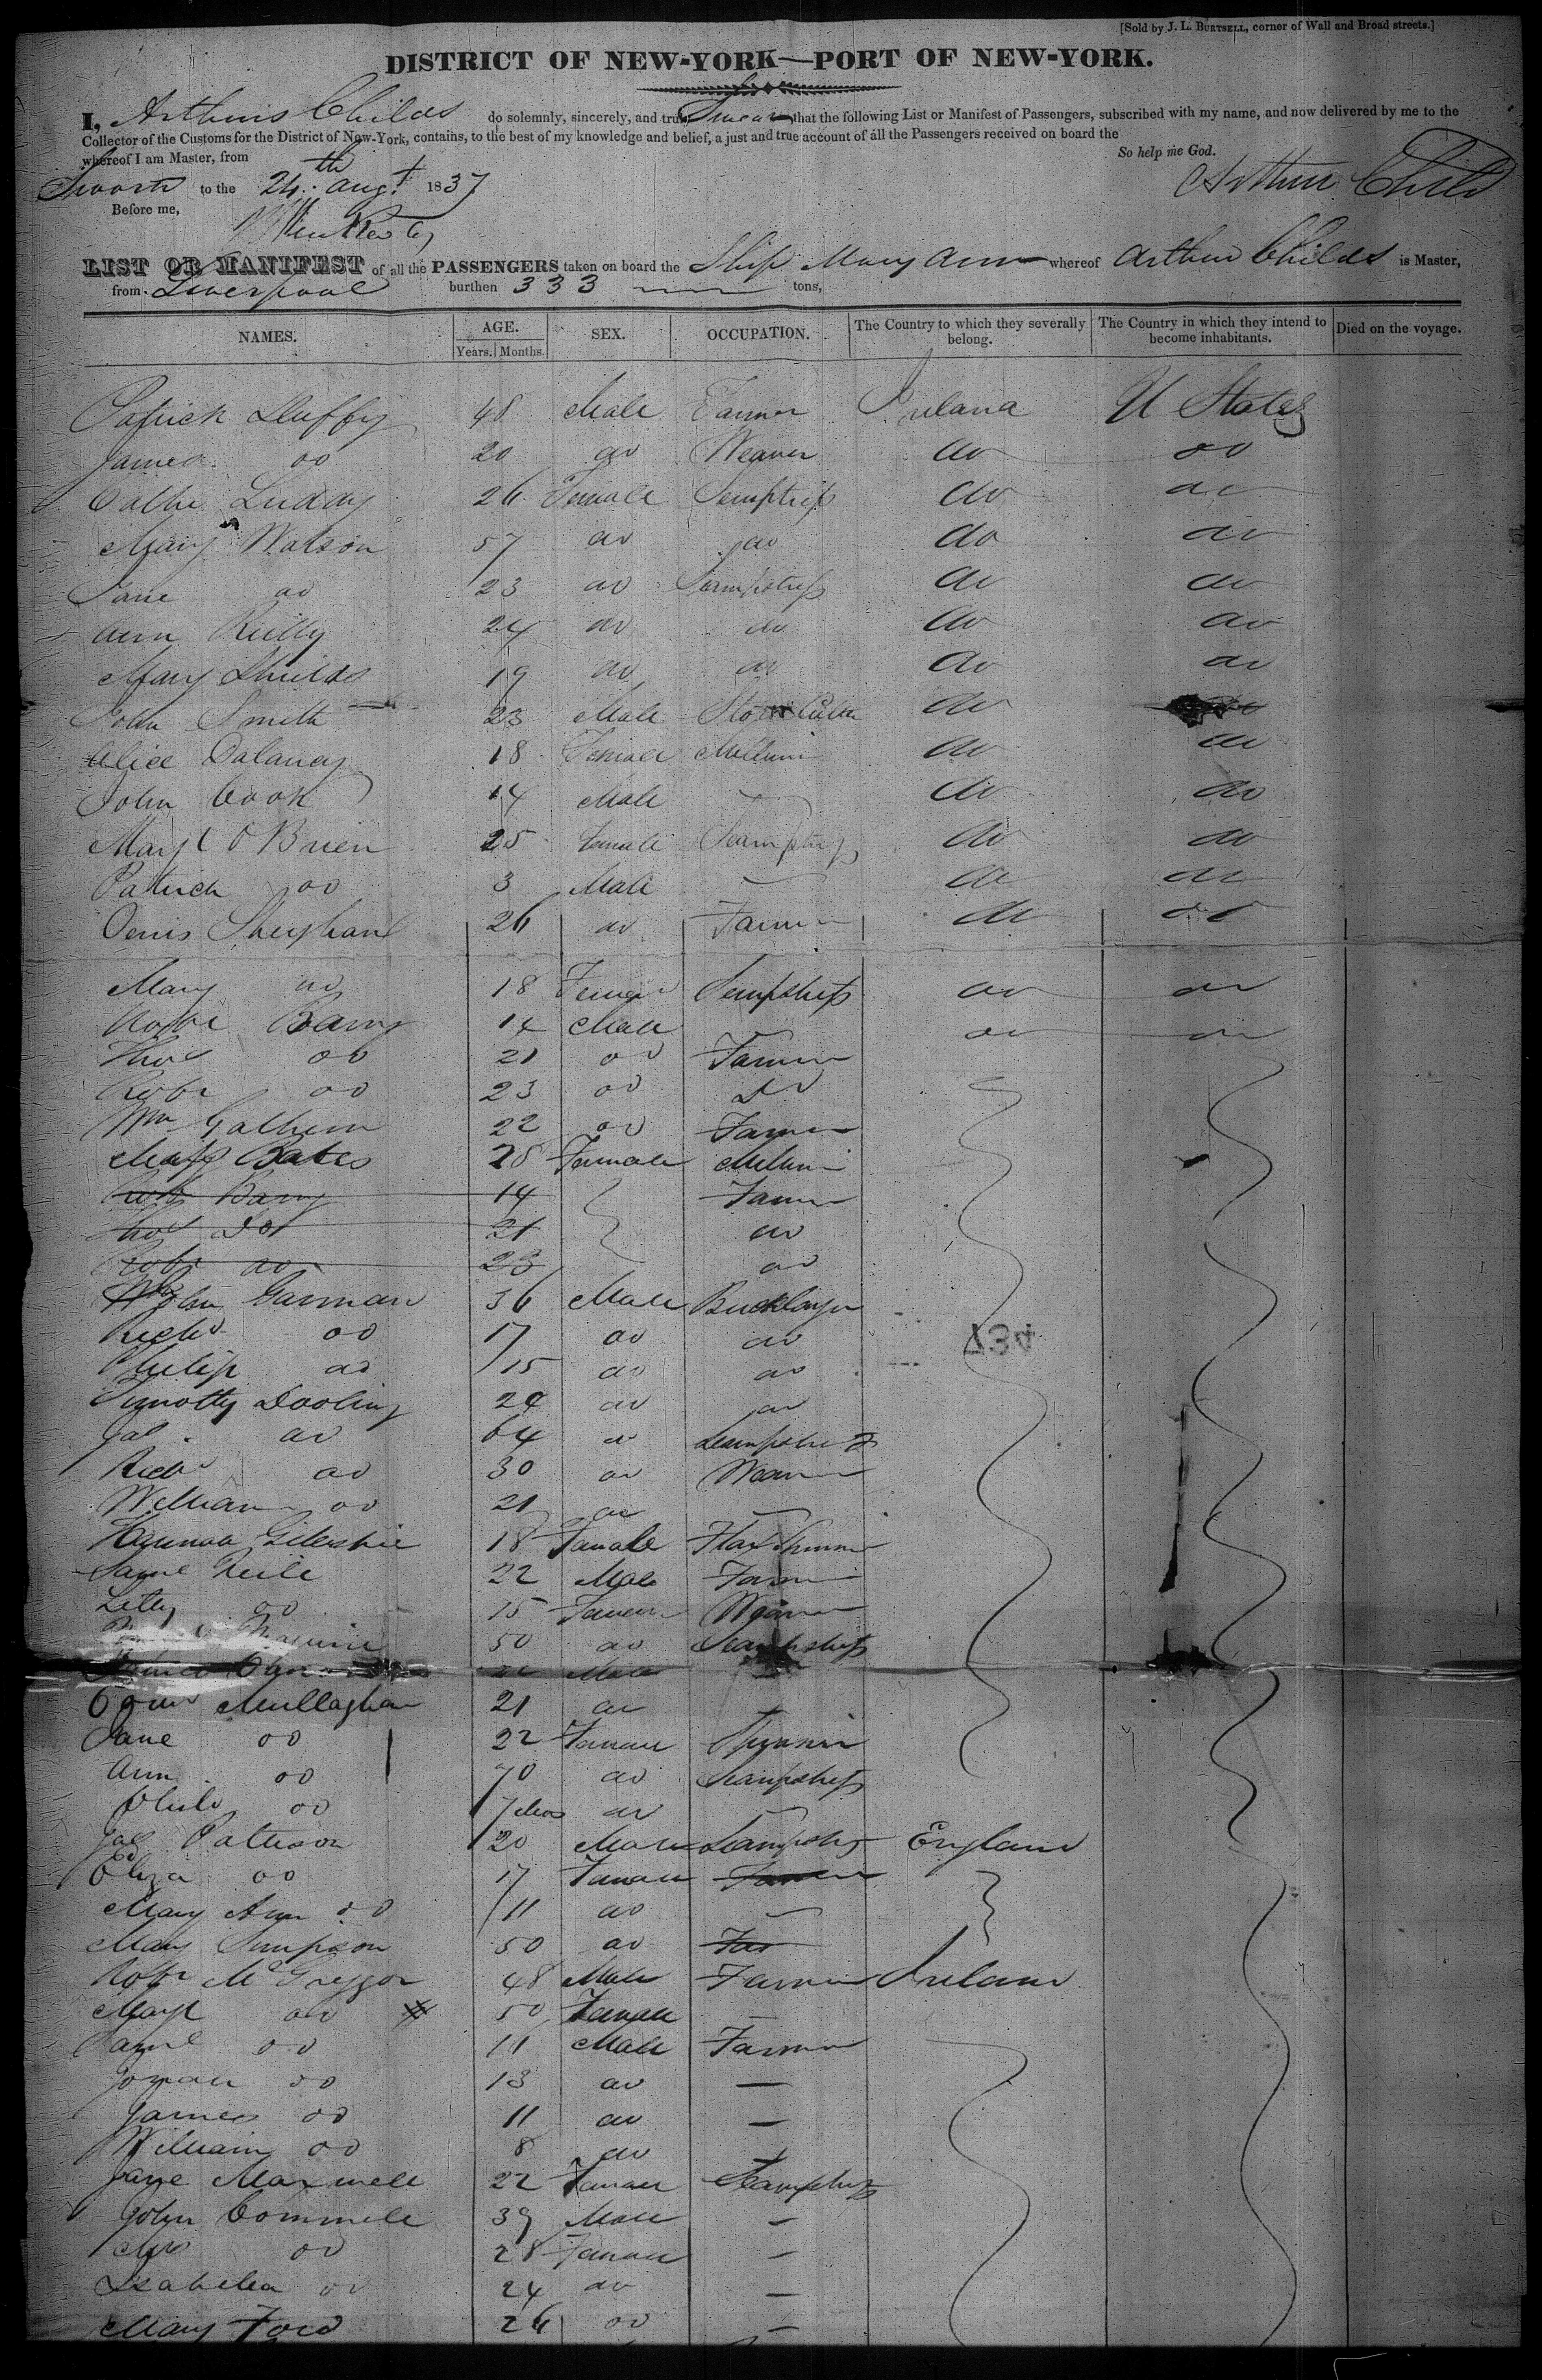 [Sold by J. L. BURTSELL, corner of Wall and Broad streets.]
DISTRICT OF NEW-YORK—PORT OF NEW-YORK.
I, Arthur Childs do solemnly, sincerely, and truly Swear that the following List or Manifest of Passengers, subscribed with my name, and now delivered by me to the
Collector of the Customs for the District of New-York, contains, to the best of my knowledge and belief, a just and true account of all the Passengers received on board the
whereof I am Master, from So help me God.
Sworn to the 24th Augt 1837 Arthur Child
Before me,
LIST OR MANIFEST of all the PASSENGERS taken on board the Ship Mary Ann whereof Arthur Childs is Master,
from Liverpool burthen 333 tons,
NAMES. AGE. SEX. OCCUPATION. The Country to which they severally belong. The Country in which they intend to become inhabitants. Died on the voyage.
Years. Months.
Patrick Duffy 48 Male Farmer Ireland U States
James do 20 do Weaver do do
26 Female Sempstress do do
Mary Watson 57 do do do do
Jane do 23 do Sempstress do do
Ann Reilly 24 do do do do
Mary Shields 19 do do do do
John Smith 23 Male Stone Cutter do do
Alice Dalaney 18 Female do do
John Cook 14 Male do do
Margt O'Brien 25 Female Seampstress do do
Patrick do 3 Male do do
Denis 26 do Farmer do do
Mary do 18 Female Sempstress do do
Robt Barry 14 Male do do
Thos do 21 do Farmer
Robt do 23 do Do
Wm 22 do Farmer
Bates 28 Female
Robt Barry 14 Farmer
Thos Do 21 do
Robt do 23 do
John Garman 36 Male Bricklayer
Richd do 17 do do
734
Philip do 15 do do
Timothy Dooling 24 do do
Jas do 64 do
Richd do 30 do Weaver
William do 21 do
Hannah Gillespie 18 Female Flax Spinner
Saml Neile 22 Male Farmer
Letty do 15 Female Weaver
50 do Seampstress
Male
Mullaghan 21 do
Jane do 22 Female Spinner
Ann do 70 do Seampstress
Child do 7 Mos do
Jas Patteson 20 Male England
Eliza do 17 Female Farmer
Mary Ann do 11 do
Mary Simpson 50 do Far
Robt McGreggor 48 Male Farmer Ireland
Margt do 50 Female
Saml do 11 Male Farmer
do 13 do —
James do 11 do —
William do 8 do
Jane Maxwell 22 Female Seampstress
John Commele 39 Male —
Mrs do 28 Female —
Isabella do 24 do —
Mary Ford 26 do —